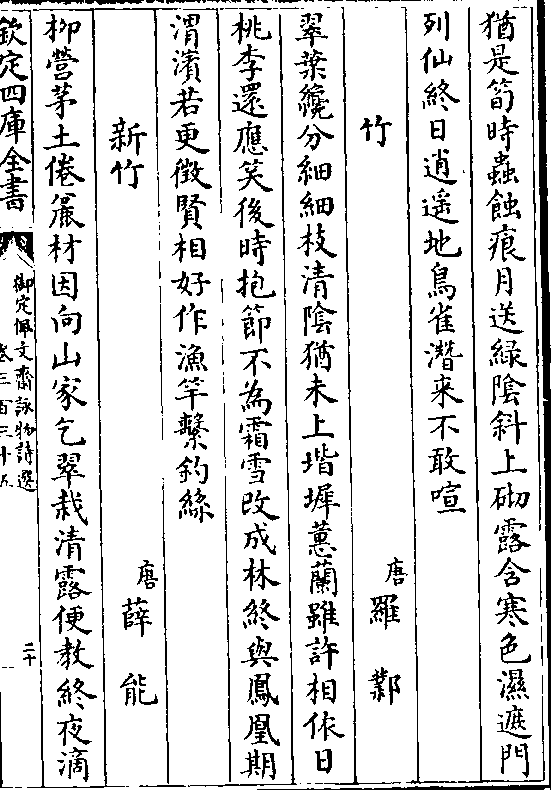 猶是筍時蟲蝕痕月送緑陰斜上砌露含寒色濕遮門
列仙終日逍遥地鳥雀潛来不敢喧
竹
唐羅鄴
翠葉纔分細細枝清陰猶未上堦墀蕙蘭雖許相依日
桃李還應笑後時抱節不為霜雪改成林終與鳳凰期
渭濱若更徵賢相好作漁竿繫釣絲
新竹
唐薛能
柳營茅土倦麤材因向山家乞翠栽清露便教終夜滴
欽定四庫全書
御定佩文齋詠物詩選
卷三百三十五
二十